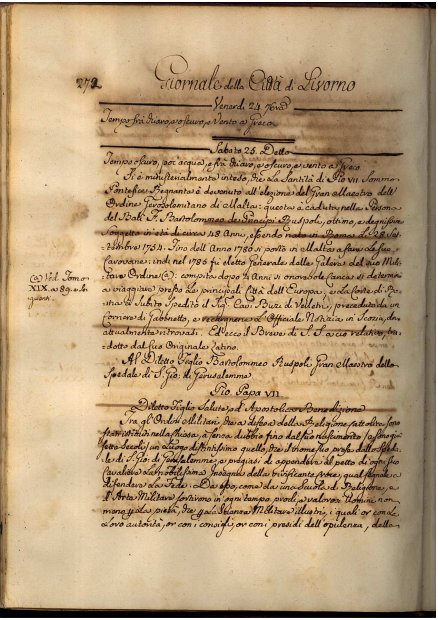 272 Giornale della Città di Livorno
Venerdì 24 9bre
Tempo frà chiaro, e oscuro, e Vento a Greco
Sabato 25 Detto
Tempo oscuro, poi acqua, e frà chiaro, e oscuro, e vento a Greco
Si è ministerialmente inteso, che la Santità di Pio VII Sommo
Pontefice Regnante è devenuto all'elezione del Gran Maestro dell'
Ordine Gerosolimitano di Malta: questa è caduta nella Persona
del Balì Fr. Bartolommeo de Principi Ruspoli, ottimo, e degnissimo
Soggetto in età di circa 48 Anni, essendo nato in Roma
1754. Fino dell'Anno 1780 si portò in Malta a fare le sue
Carovane: indi nel 1786 fù eletto Generale delle Galere del suo Mili-
tare Ordine (a): compito dopo Anni si onorevole carica si determinò
a viaggiare presso le principali Città dell'Europa: e la Corte di Ro-
ma à Subito Spedito il Sig. Cav. Buzi di Velletri, preceduto da un
Corriere di Gabbinetto, a recargliene l'Officiale Notizia in Scozia, do-
ve attualmente ritrovasi. Ed ecco il Breve di S. S. a ciò relativo, tra-
dotto dal suo Originale Latino.
(a) Ved. Tomo
XIX. a 89. e se-
guenti.
Al Diletto Figlio Bartolommeo Ruspoli Gran Maestro dello
Spedale di S. Gio: di Gerusalemme
Pio Papa VII
Diletto Figlio Salute, ed Apostolica Benedizione
Fra gli Ordini Militari, che a difesa della Religione Cattolica sono
stati istituiti nella Chiesa, è senza dubbio fino dal suo nascimento
Secoli) un Luogo distintissimo quello, che il nome suo prese dallo Speda-
le di S. Gio: di Gerusalemme, e prefissi di appendere al petto di ogni suo
Cavaliere la nobilissima Insegna della vivificante Croce, qual segnale a
difendere la Fede. Da esso, come da una Scuola di Religione, e
d'Arte Militare sortirono in ogni tempo prodi, e valorosi Uomini non
meno per la pietà, che per la Scienza Militare illustri, i quali or con la
Loro autorità, or con i consigli, or con i presidi dell'opulenza, della